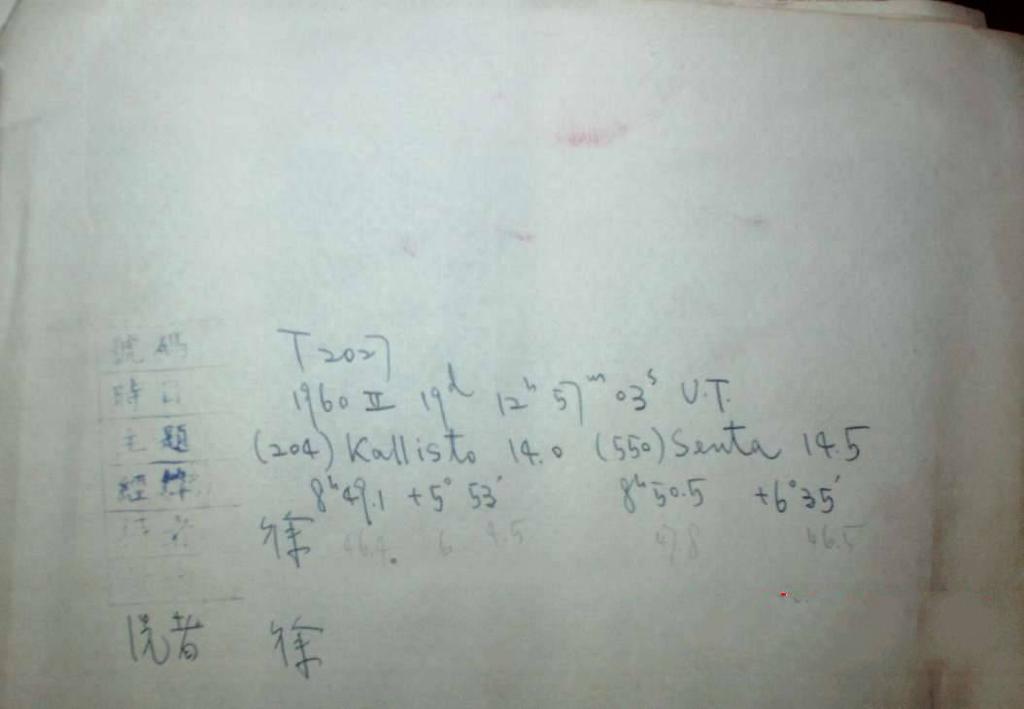 號碼 T2027
時日 1960 II 19ᵈ 12ʰ 57ᵐ 03ˢ U.T.
主題 (204) Kallisto 14.0 (550) Senta 14.5
經緯 8ʰ49.1 +5°53′ 8ʰ50.5 +6°35′
徐 46.5
者 徐